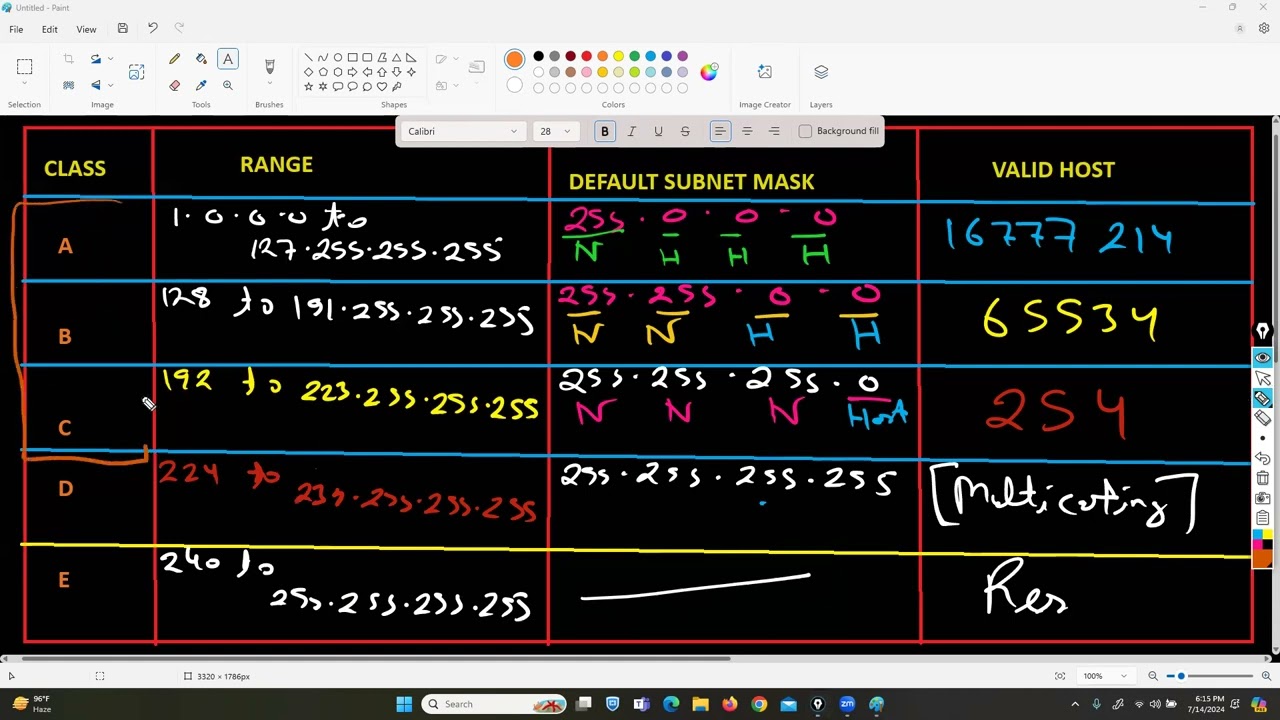 Untitled - Paint
File Edit View
Selection Image Tools Brushes Shapes Colors Image Creator Layers
Calibri 28 B I U S Background fill
CLASS RANGE DEFAULT SUBNET MASK VALID HOST
A 1.0.0.0 to 255.0.0.0 16777 214
127.255.255.255 N H H H
B 128 to 191.255.255.255 255.255.0.0 65534
N N H H
C 192 to 223.255.255.255 255.255.255.0 254
N N N Host
D 224 to 255.255.255.255 [Multicasting]
239.255.255.255
E 240 to Res
255.255.255.255
3320 × 1786px 100%
96°F
Haze
Search
6:15 PM
7/14/2024